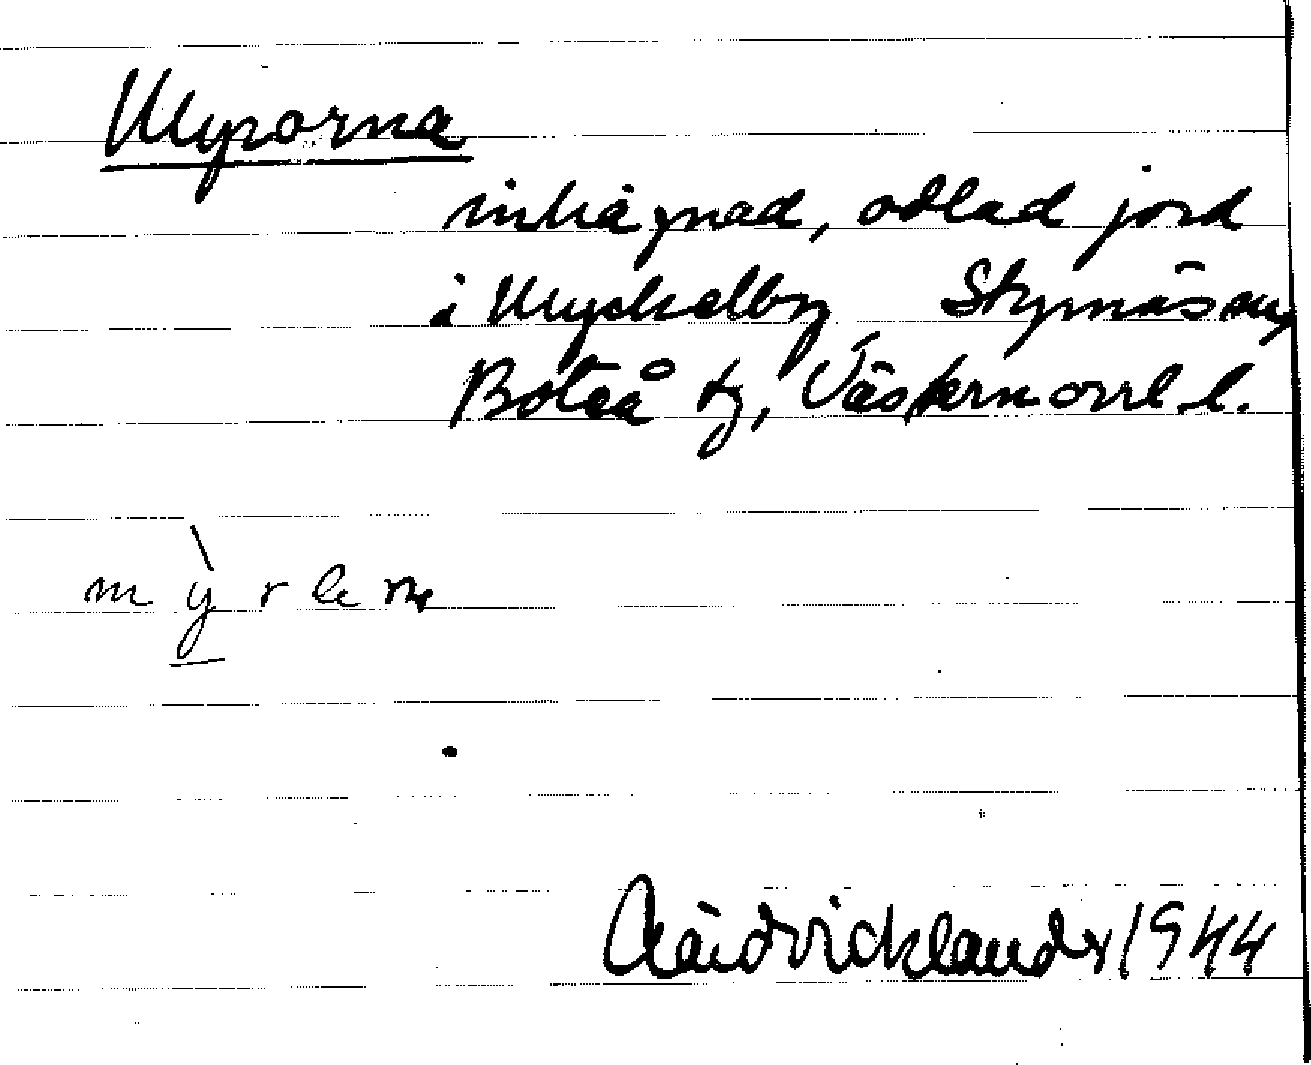 Myrorna
inhägnad, odlad jord
i Myckelby Styrnäs sn,
Boteå tg, Västernorrl. l.
m ỳ̖ r
1944